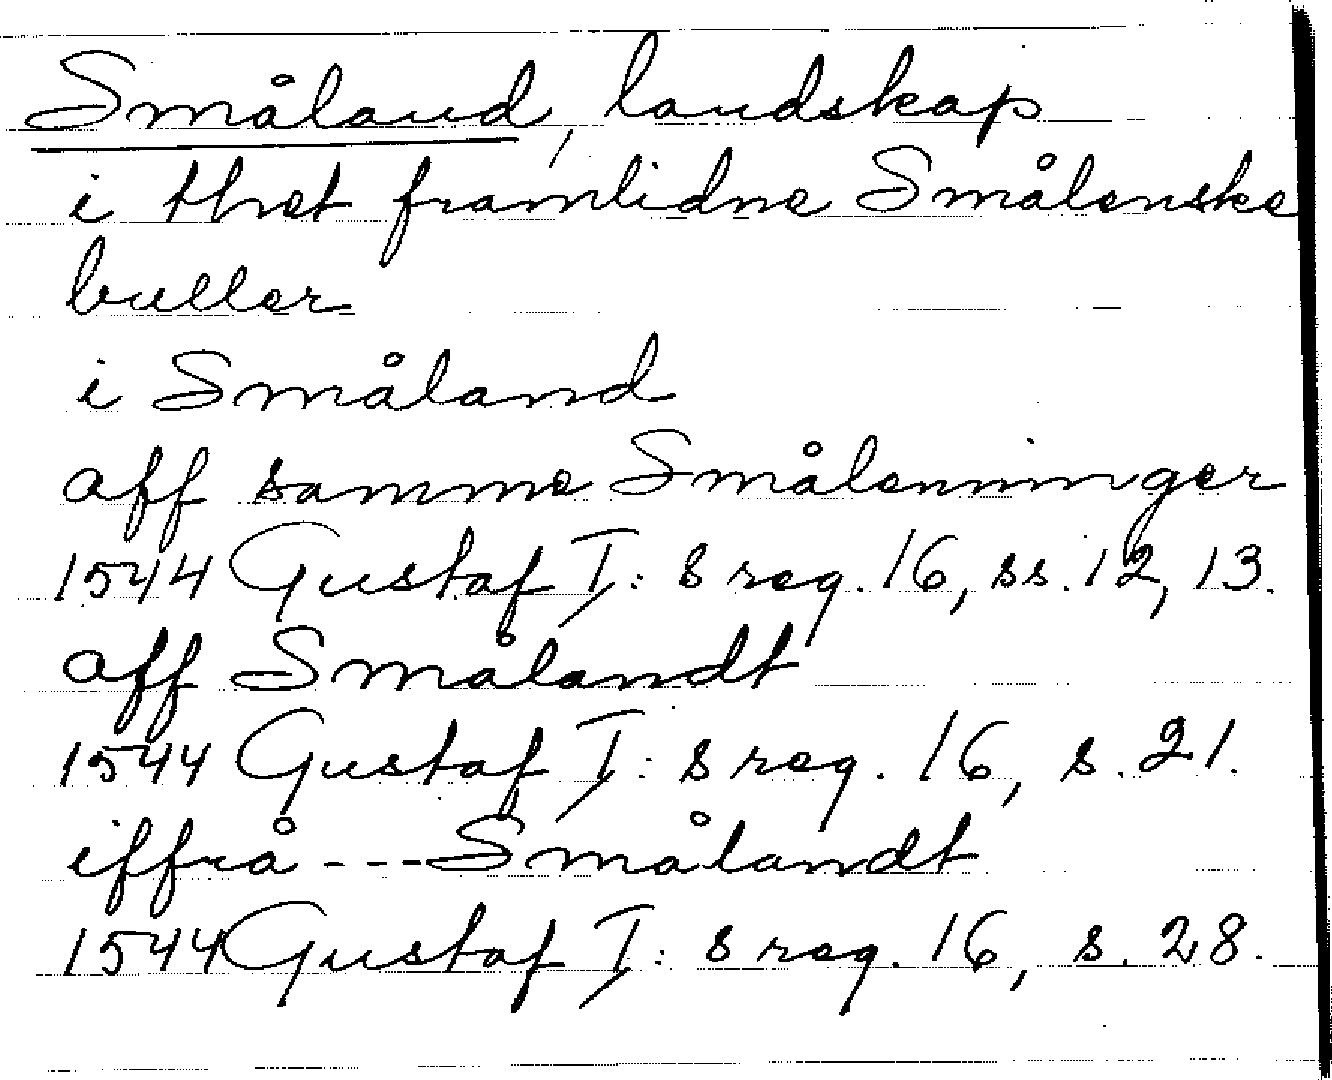 Småland, landskap
i thet framlidne Smålenske
buller
i Småland
aff samme Smålenninger
1544 Gustaf I: s reg. 16, ss. 12, 13.
aff Smålandt
1544 Gustaf I: s reg. 16, s. 21.
iffrå --- Smålandt
1544 Gustaf I: s reg. 16, s. 28.